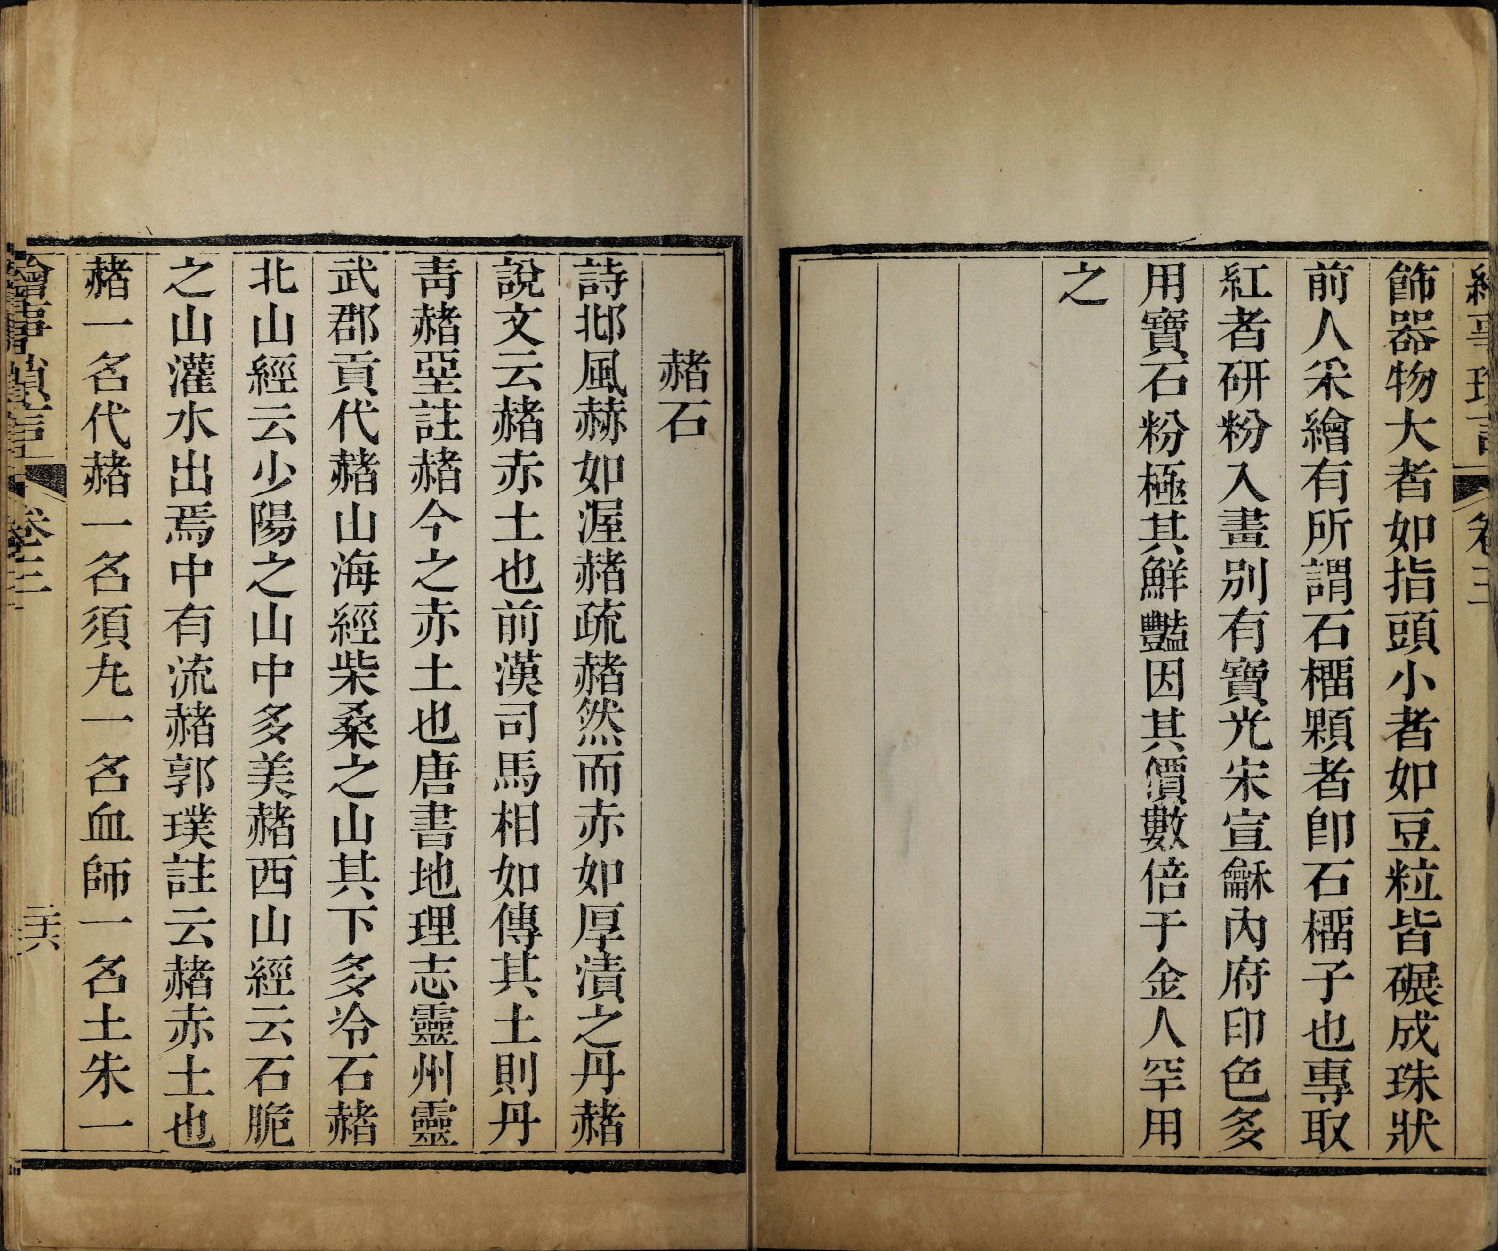 繪事瑣言 卷三
飾器物大者如指頭小者如豆粒皆碾成珠狀
前人采繪有所謂石榴顆者卽石榴子也專取
紅者研粉入畫別有寶光宋宣龢內府印色多
用寶石粉極其鮮豔因其價數倍于金人罕用
之
赭石
詩邶風赫如渥赭疏赭然而赤如厚漬之丹赭
說文云赭赤土也前漢司馬相如傳其土則丹
靑赭堊註赭今之赤土也唐書地理志靈州靈
武郡貢代赭山海經柴桑之山其下多泠石赭
北山經云少陽之山中多美赭西山經云石脆
之山灌水出焉中有流赭郭璞註云赭赤土也
赭一名代赭一名須丸一名血師一名土朱一
繪事瑣言 卷三 二十六